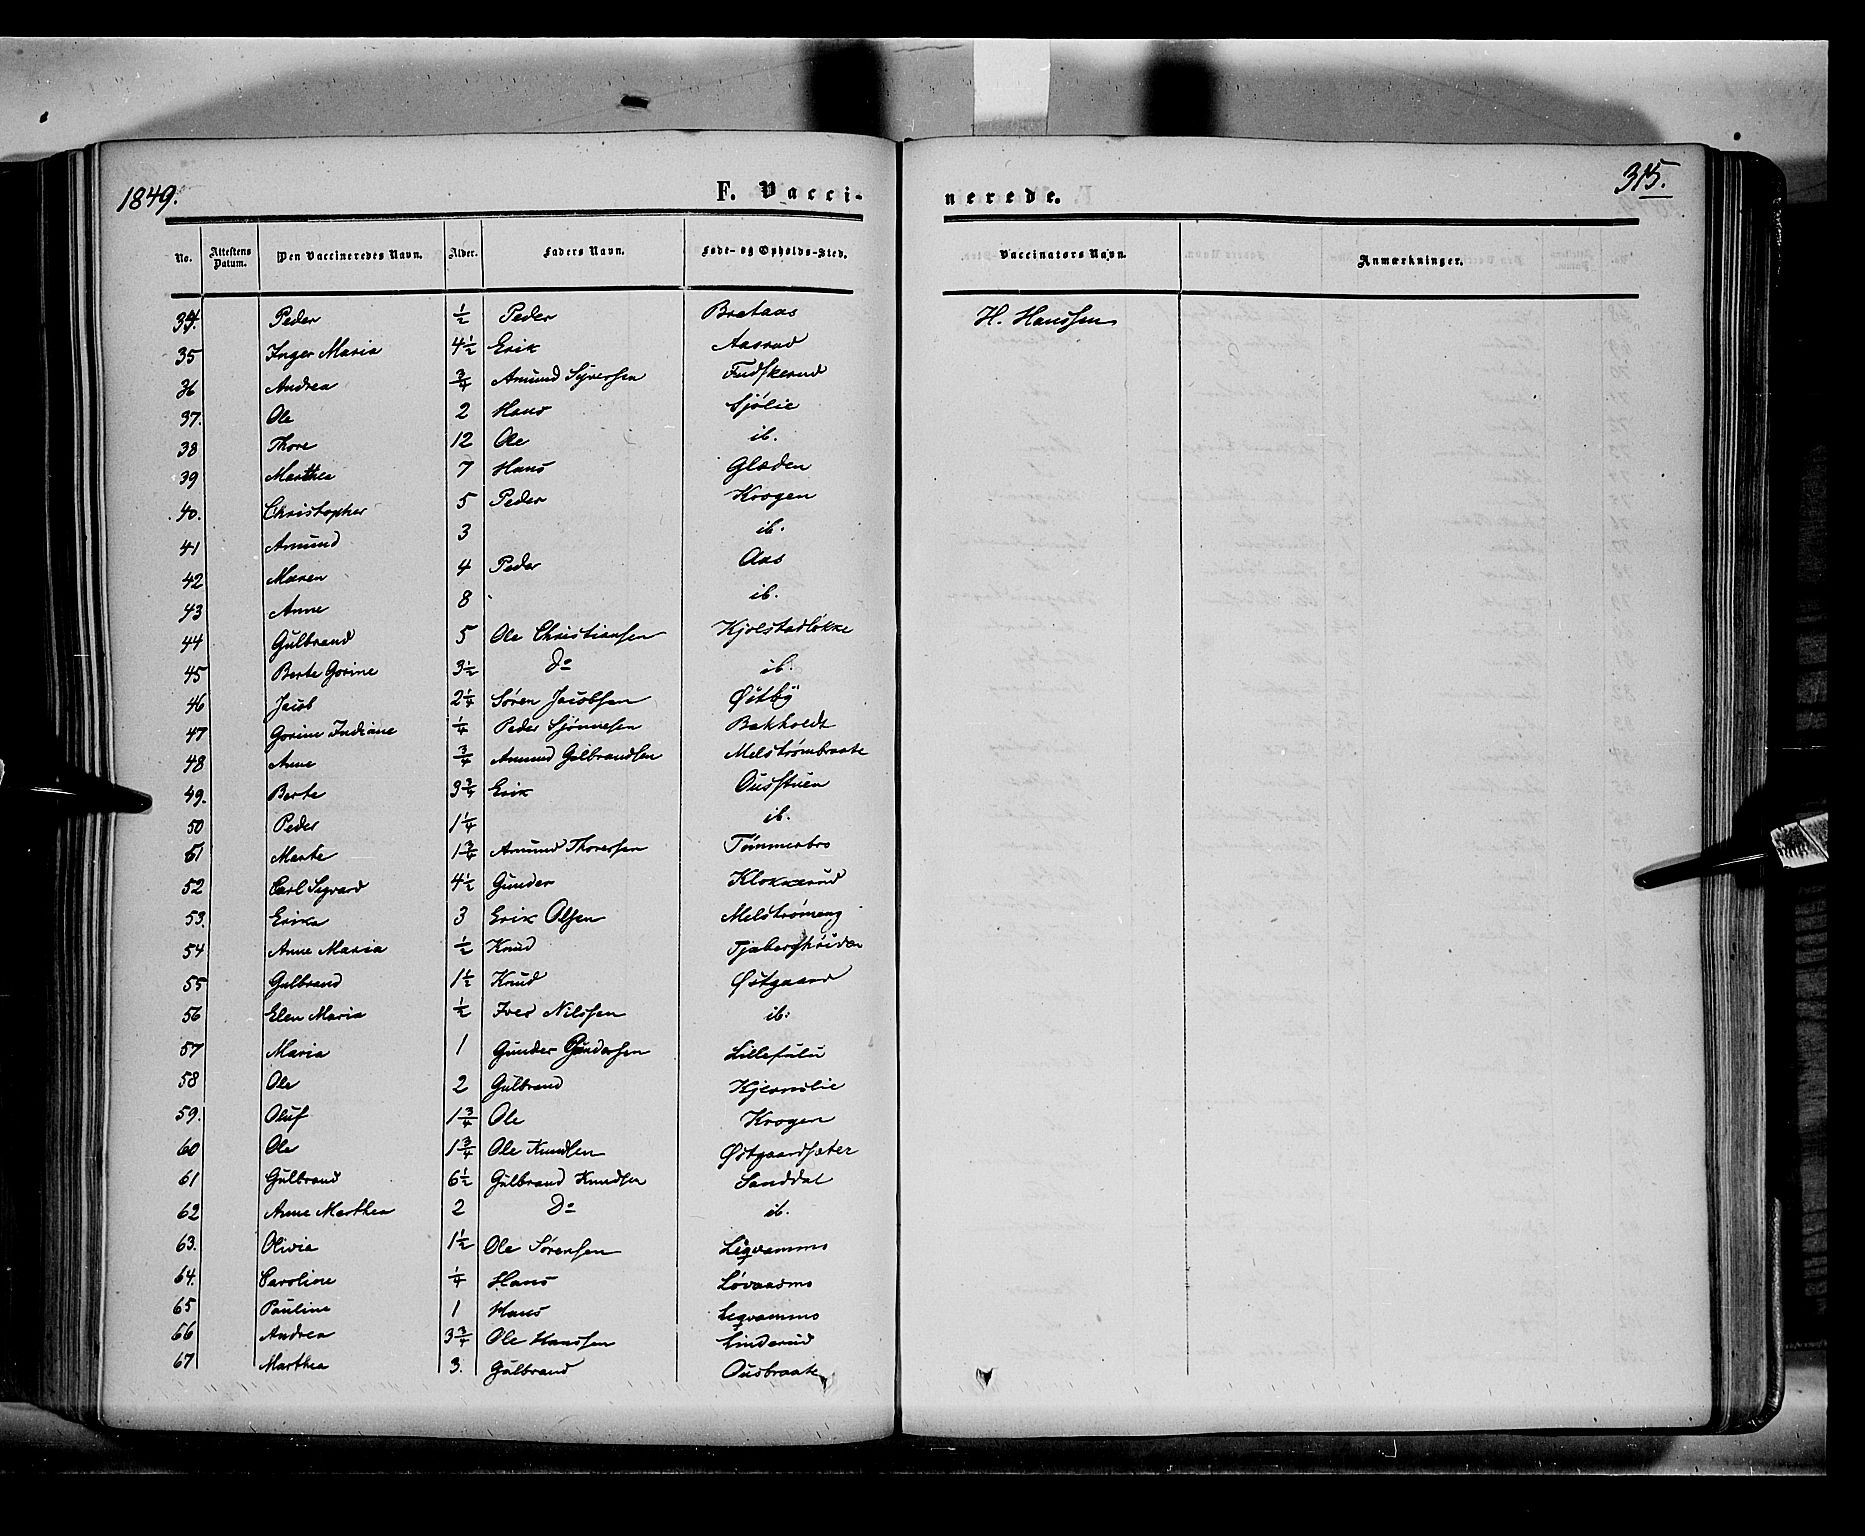 1849.
F. Vacci-
nerede.
315.
No. Attestens Datum. Den Vaccineredes Navn. Alder. Faders Navn. Føde- og Opholds-Sted. Vaccinators Navn. Anmærkninger.
34. Peder ½ Peder Brataas H. Hanssen
35 Inger Maria 4½ Erik Aasrud
36 Andrea ¾ Amund Syversen Fudskerud
37. Ole 2 Hans Sjølie
38 Thore 12 Ole ib.
39 Marthea 7 Hans Glæden
40. Christopher 5 Peder Krogen
41 Amund 3 ib.
42 Maren 4 Peder Aas
43 Anne 8 ib.
44 Gulbrand 5 Ole Christiansen Kjølstadløkke
45 Berte Gorine 3½ Do ib.
46 Jacob 2¼ Søren Jacobsen Østby
47 Gorine Indiane ¼ Peder Sjønnesen Bakholdt
48 Anne ¾ Amund Gulbrandsen Melstrømbraate
49. Berte 3¾ Erik Ousstuen
50 Peder 1¼ ib.
51 Marte 1¾ Amund Thoresen Tømmerbro
52 Carl Sigvard 4½ Gunder Klokkerud
53. Erika 3 Erik Olsen Melstrømeng
54 Anne Maria ½ Knud
55 Gulbrand 1½ Knud Østgaard
56 Elen Maria ½ Iver Nilssen ib:
57 Maria 1 Gunder Gundersen Lillefulu
58 Ole 2 Gulbrand Kjernlie
59. Oluf 1¾ Ole Krogen
60 Ole 1¾ Ole Knudsen Østgaardsæter
61 Gulbrand 6½ Gulbrand Knudsen Sanddal
62 Anne Marthea 2 Do ib.
63. Olivia 1½ Ole Sørensen Ligvammo
64. Caroline ¼ Hans Løvaasmo
65 Pauline 1 Hans Legvammo
66 Andrea 3¾ Ole Hanssen Linderud
67 Marthea 3. Gulbrand Ousbraate